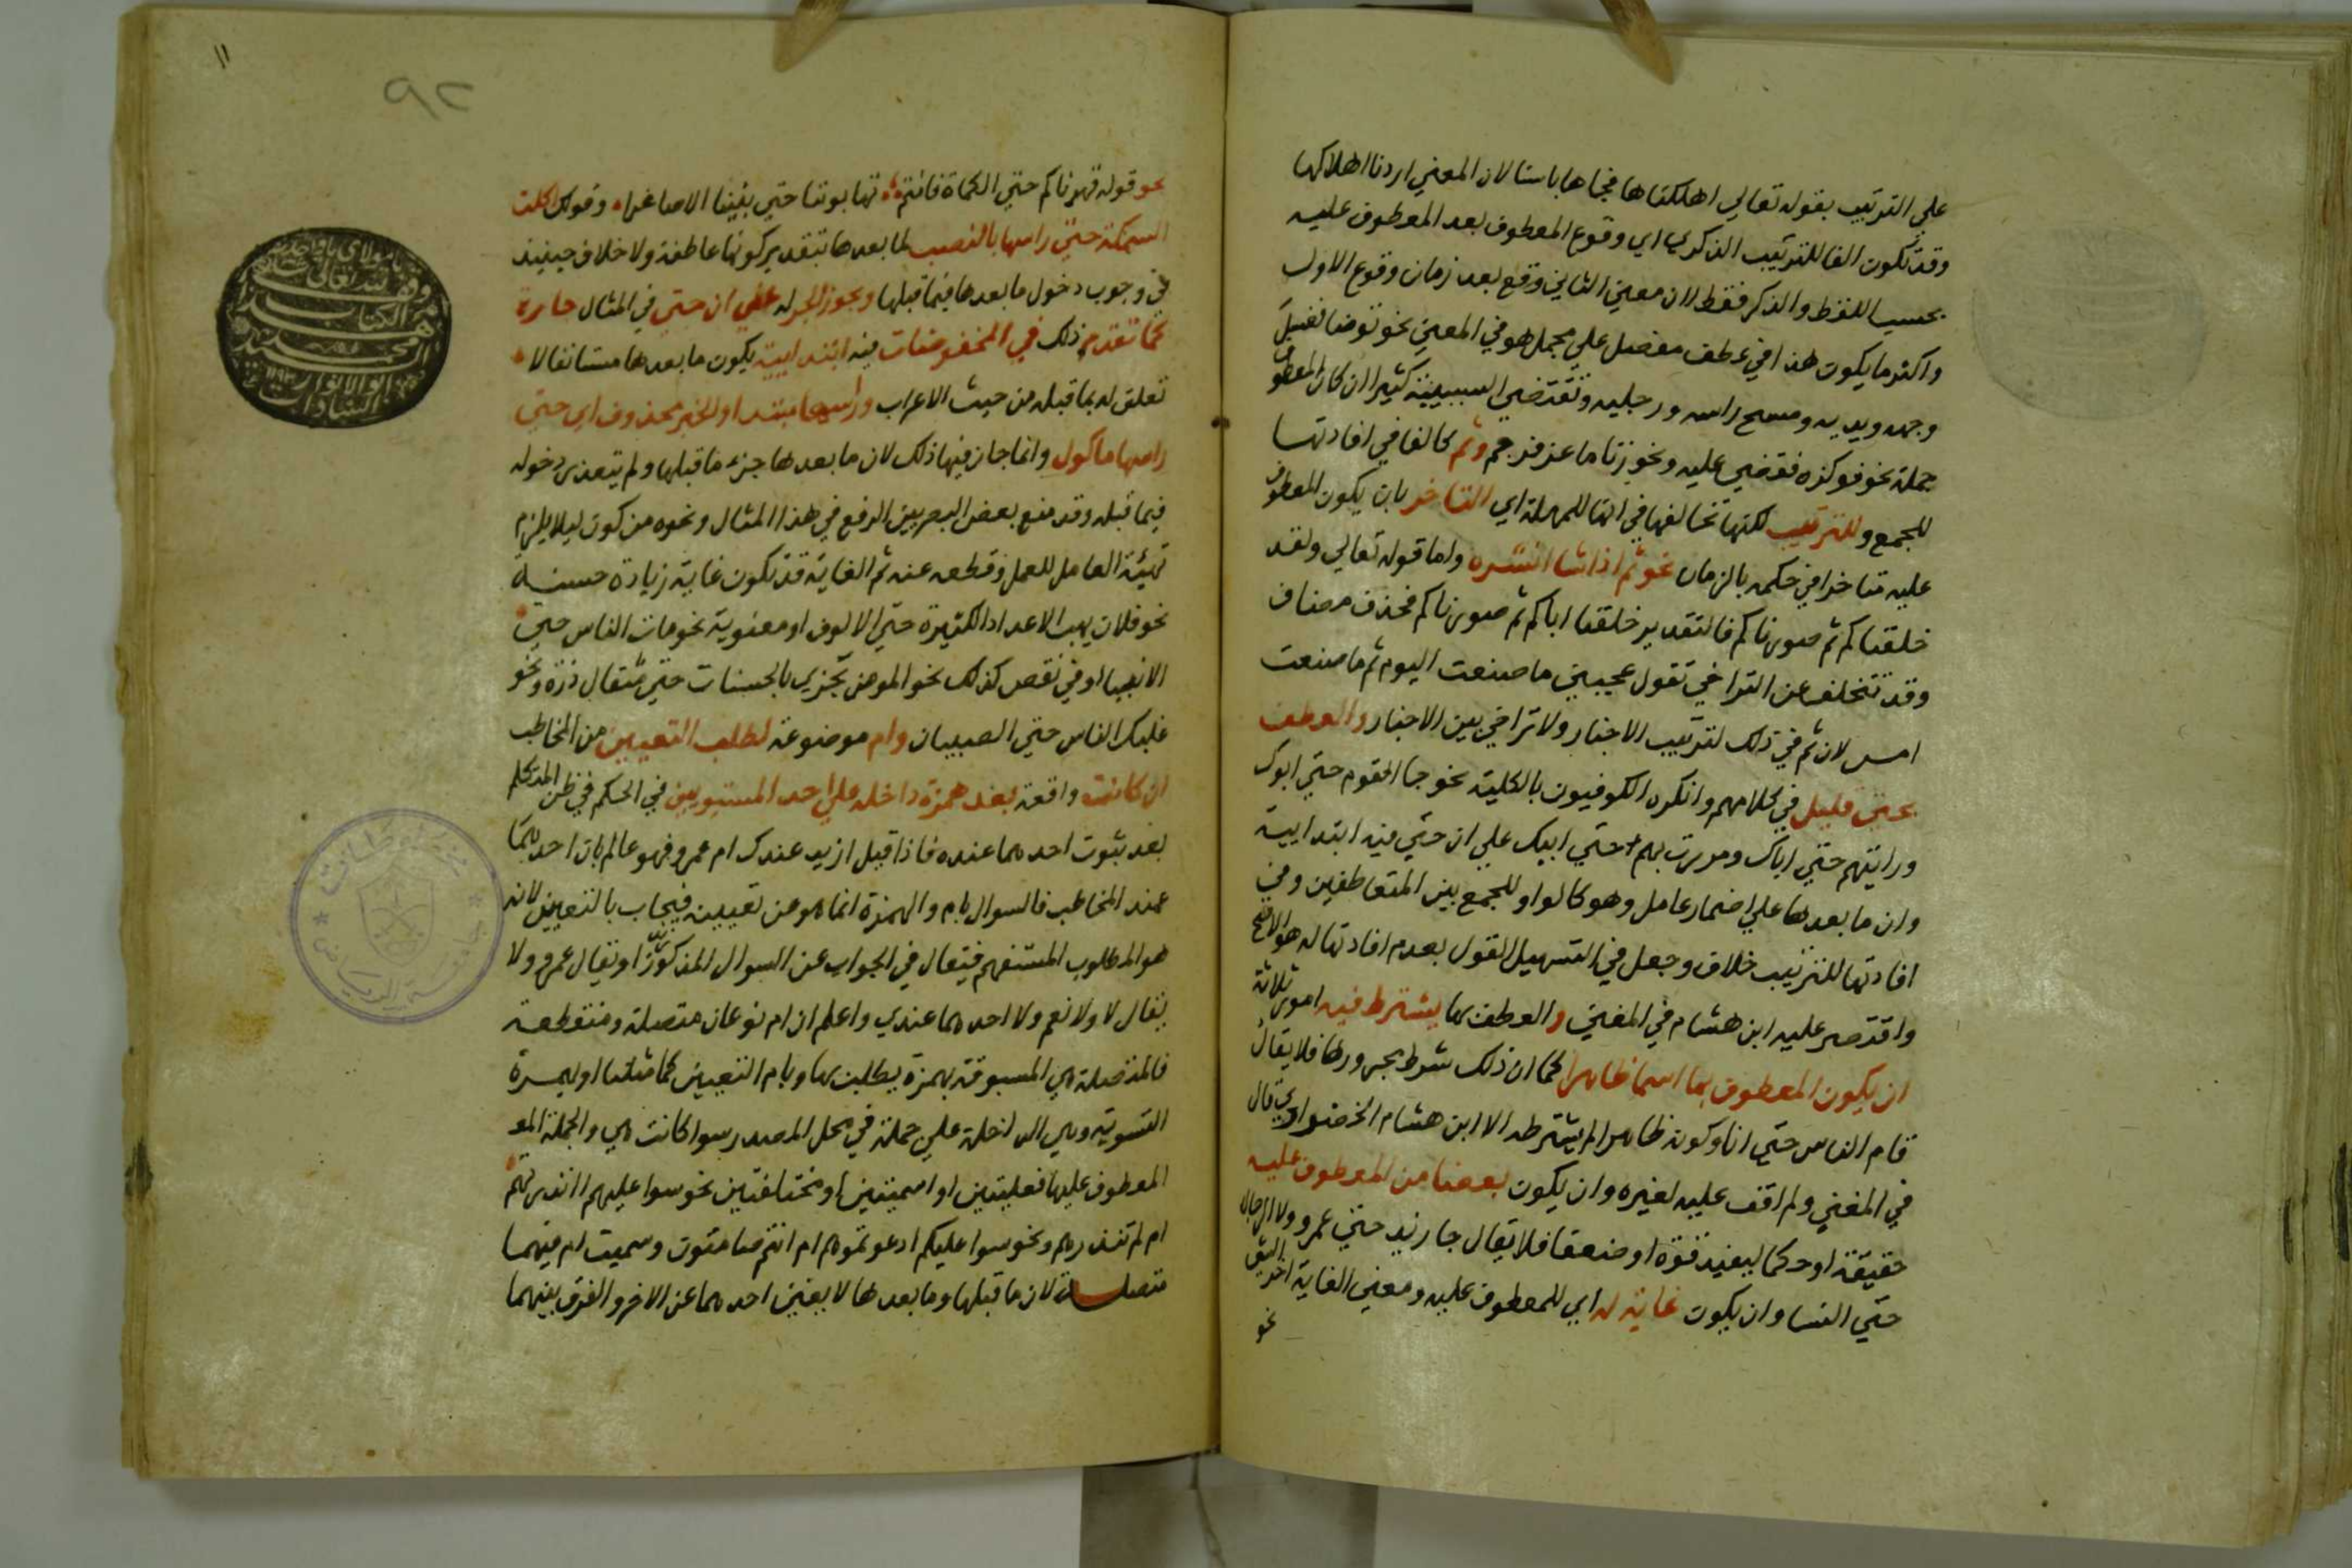 علي الترتيب بقوله تعالي اهلكناها فجاها باسنا لان المعني اردنا اهلاكها
وقد تكون الفا للترتيب الذكري اي وقوع المعطوف بعد المعطوف عليه
بحسب اللفظ والذكر فقط لا ان معني الثاني وقع بعد زمان وقوع الاول
واكثر ما يكون هذا في عطف مفصل علي مجمل هو في المعني نحو توضا فغسل
وجهه ويديه ومسح راسه ورجليه وتقتضي السببية كثيرا ان كان المعطوف
جملة نحو فوكزه فقضي عليه ونحو زنا ماعز فرجم وثم كالفا في افادتها
للجمع وللترتيب لكنها تخالفها في انها للمهلة اي التاخر بان يكون المعطوف
عليه متاخرا في حكمه بالزمان نحو ثم اذا شا انشره واما قوله تعالي ولقد
خلقناكم ثم صورناكم فالتقدير خلقنا اباكم ثم صورناكم فحذف مضاف
وقد تتخلف عن التراخي تقول عجبني ما صنعت اليوم ثم ما صنعت
امس لان ثم في ذلك لترتيب الاخبار ولا تراخي بين الاخبار والعطف
بحتي قليل في كلامهم وانكره الكوفيون بالكلية نحو جا القوم حتي ابوك
ورايتهم حتي اباك ومررت بهم حتي ابيك علي ان حتي فيه ابتدايية
وان ما بعدها علي اضمار عامل وهو كالواو للجمع بين المتعاطفين وفي
افادتها للترتيب خلاف وجعل في التسهيل القول بعدم افادتها له هو الاصح
واقتصر عليه ابن هشام في المغني والعطف بها يشترط فيه امور ثلاثة
ان يكون المعطوف بها اسما ظاهرا كما ان ذلك شرط مجرورها فلا يقال
قام الناس حتي انا وكونه ظاهرا لم يشترطه الا ابن هشام الخضراوي قال
في المغني ولم اقف عليه لغيره وان يكون بعضا من المعطوف عليه
حقيقة او حكما ليفيد قوة او ضعفا فلا يقال جا زيد حتي عمرو ولا الرجال
حتي النسا وان يكون غاية له اي للمعطوف عليه ومعني الغاية اخر الشي
نحو
١١
٩٢
نحو قوله قهرناكم حتي الكماة فانتم تهابوننا حتي بنينا الاصاغرا وقولك اكلت
السمكة حتي راسها بالنصب لما بعدها بتقدير كونها عاطفة ولا خلاف حينيذ
في وجوب دخول ما بعدها فيما قبلها ويجوز الجر له علي ان حتي في المثال جارة
كما تقدم ذلك في المخفوضات فيه ابتدايية يكون ما بعدها مستانفا لا
تعلق له بما قبله من حيث الاعراب وراسها مبتدا والخبر محذوف اي حتي
راسها ماكول وانما جاز فيها ذلك لان ما بعدها جزء ما قبلها ولم يتعذر دخوله
فيما قبله وقد منع بعض البصريين الرفع في هذا المثال ونحوه من كون ليلا يلزم
تهيئة العامل للعمل وقطعه عنه ثم الغاية قد تكون غاية زيادة حسنة
نحو فلان يهب الاعداد الكثيرة حتي الالوف او معنوية نحو مات الناس حتي
الانبيا او في نقص كذلك نحو المومن يجزي بالحسنات حتي مثقال ذرة ونحو
غلبك الناس حتي الصبيان وام موضوعة لطلب التعيين من المخاطب
ان كانت واقعة بعد همزة داخلة علي احد المستويين في الحكم في ظن المتكلم
بعد ثبوت احدهما عنده فاذا قيل ازيد عندك ام عمرو فهو عالم بان احدهما
عند المخاطب فالسوال بام والهمزة انما هو عن تعيينه فيجاب بالتعيين لانه
هو المطلوب المستفهم فيقال في الجواب عن السوال المذكور زيد او يقال عمرو ولا
يقال لا ولا نعم ولا احدهما عندي واعلم ان ام نوعان متصلة ومنقطعة
فالمتصلة هي المسبوقة بهمزة يطلب بها وبام التعيين كما مثلنا او بهمزة
التسوية وهي الداخلة علي جملة في محل المصدر سوا كانت هي والجملة المعـ
المعطوف عليها فعليتين او اسميتين او مختلفتين نحو سوا عليهم اانذرتهم
ام لم تنذرهم ونحو سوا عليكم ادعوتموهم ام انتم صامتون وسميت ام فيهما
متصلة لان ما قبلها وما بعدها لا يغني احدهما عن الاخر والفرق بينهما